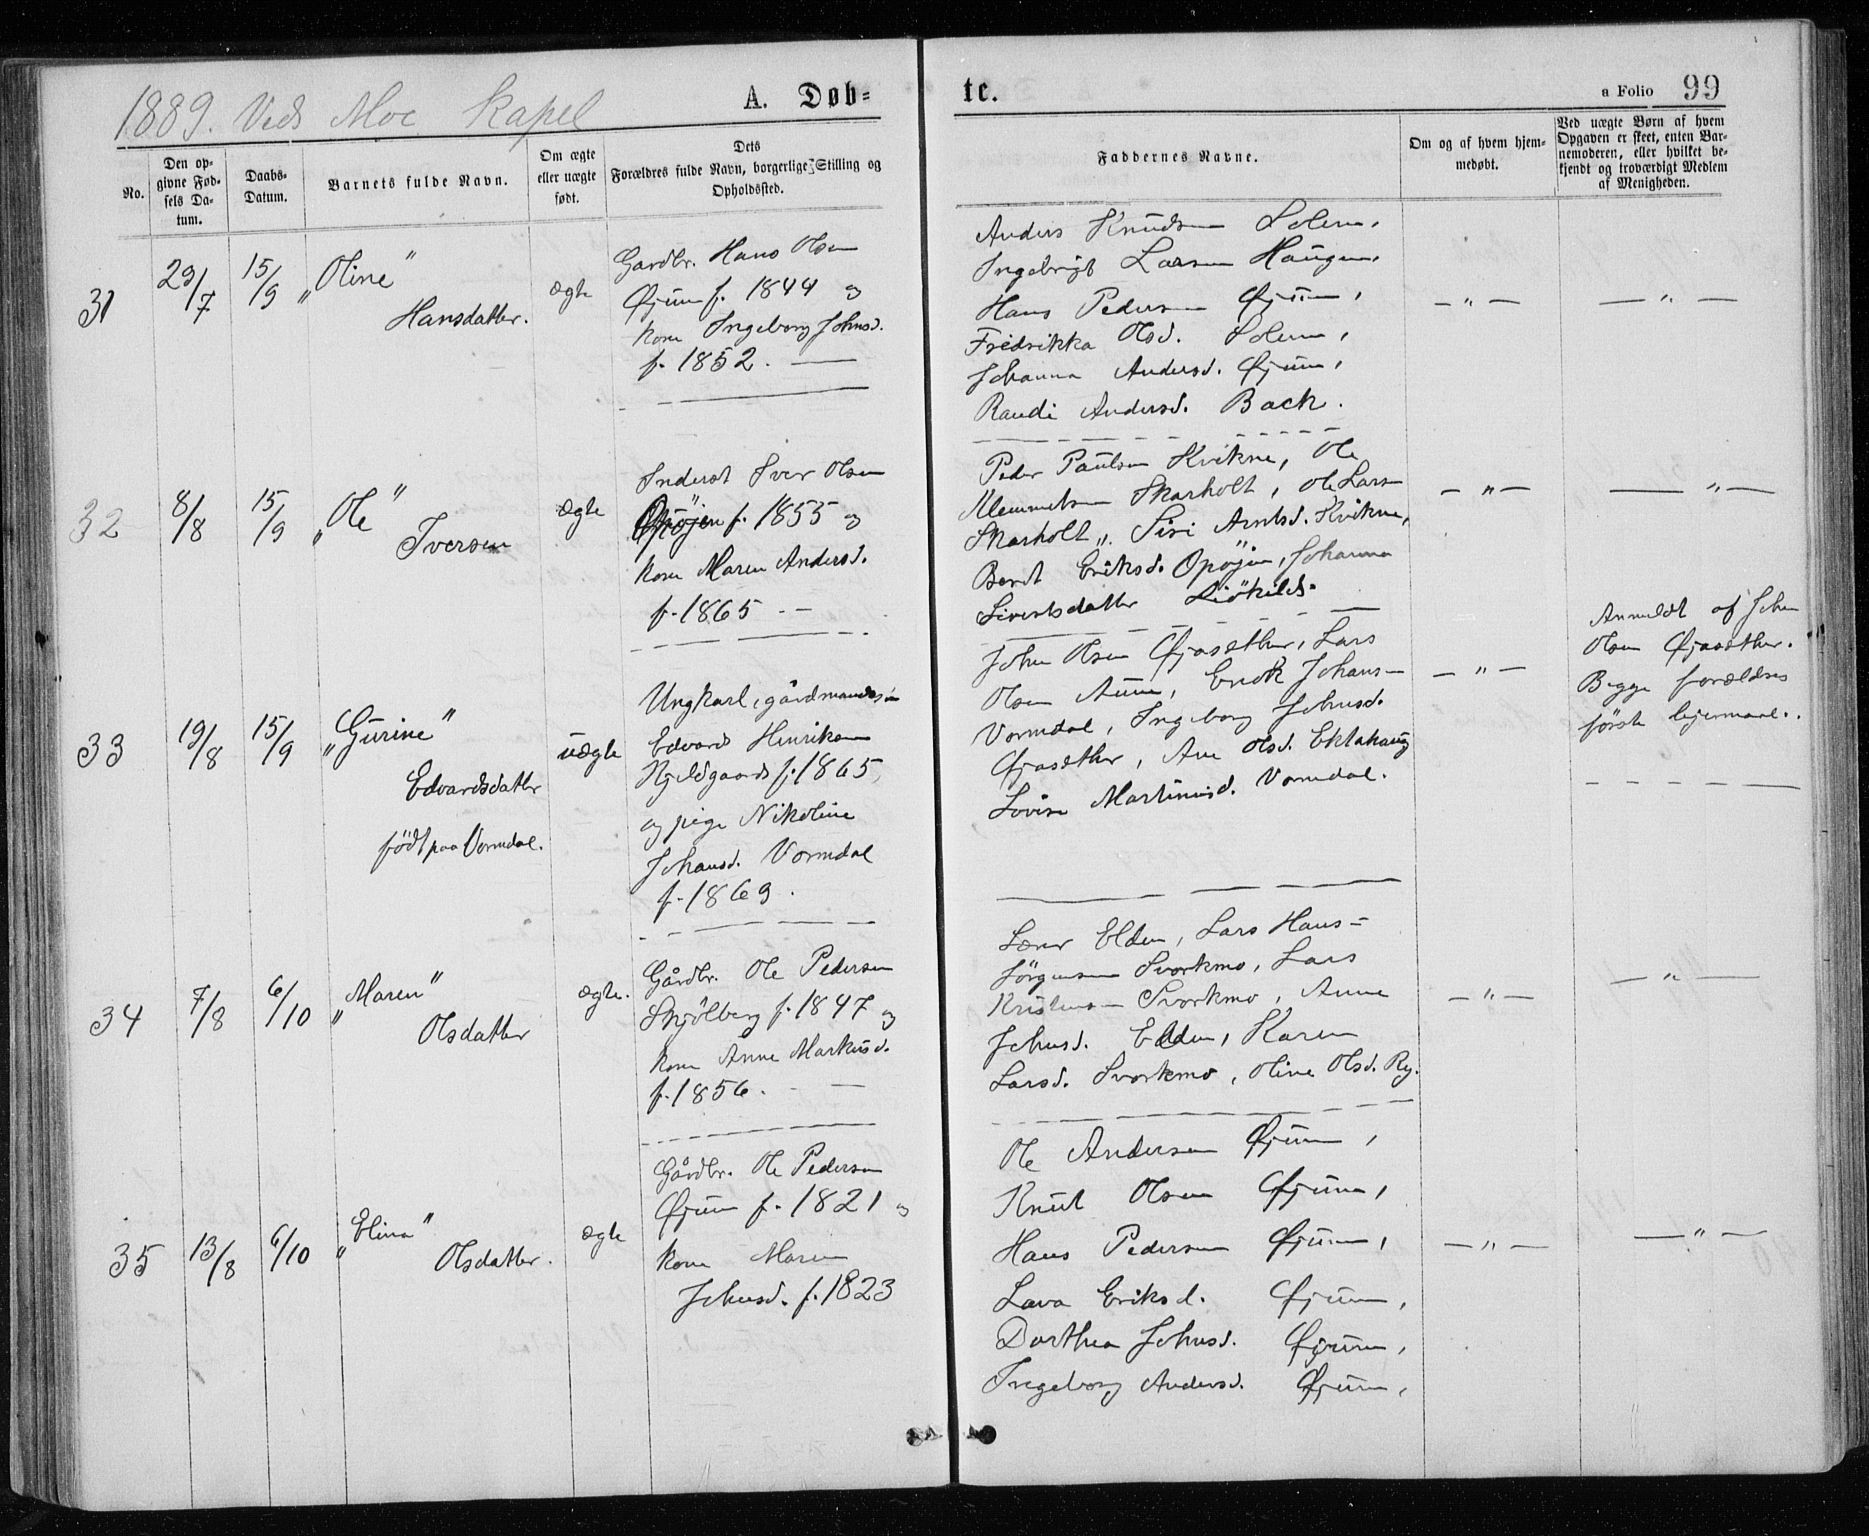 1889. Veds Moe Kapel
A. Døb-
te.
a Folio 99
No.
Den op-
givne Fød-
sels Da-
tum.
Daabs-
Datum.
Barnets fulde Navn.
Om ægte
eller uægte
født.
Dets
Forældres fulde Navn, borgerlige Stilling og
Opholdssted.
Faddernes Navne.
Om og af hvem hjem-
medøbt.
Ved uægte Børn af hvem
Opgaven er skeet, enten Bar-
nemoderen, eller hvilket be-
kjendt og troværdigt Medlem
af Menigheden.
31
29/7
15/9
"Oline"
Hansdatter.
ægte
Gardbr. Hans Olsen
Øjum f. 1844 og
kone Ingeborg Johnsd.
f. 1852. —
Anders Knudsen Solem,
Ingebrigt Larsen Haugen,
Hans Pedersen Øjum,
Fredrikka Olsd. Solem,
Johanna Andersd. Øjum,
Randi Andersd. Back.
— " —
— " —
32
8/8
15/9
"Ole"
Iversen
ægte
Inderst Iver Olsen
Opøjen f. 1855 og
kone Maren Andersd.
f. 1865 - —
Peder Paulsen Kvikne, Ole
Klemmetsen Skarholt, Ole Larsen
Skarholt, Siri Arntsd. Kvikne,
Beret Eriksd. Opøjen, Johanna
Sivertsdatter
— " —
— " —
33
19/8
15/9
"Gurine"
Edvardsdatter
født paa Vormdal.
uægte
Ungkarl, gårdmandssøn
Edvard Henriksen
f. 1865,
og pige Nikoline
Johansd. Vormdal
f. 1869.
John Olsen Øjasæther, Lars
Olsen Aune, Erick Johansen
Vormdal, Ingeborg Johnsd.
Øjasæther, Ane Olsd. Eklahaug
Lovise Martinusd. Vormdal.
— " —
Anmeldt af John
Olsen Øjasæther.
Begge forældres
første lejermaal.
34
7/8
6/10
"Maren"
Olsdatter
ægte.
Gårdbr. Ole Pedersen
Skjølberg f. 1847 og
kone Anne Markusd.
f. 1856. - —
Lærer Elden, Lars Hans-
Jørgensen Svorkmo, Lars
Kristensen Svorkmo, Anne
Johnsd. Elden, Karen
Larsd. Svorkmo, Oline Olsd. Ry.
— " —
— " —
35
13/8
6/10
"Elina"
Olsdatter.
ægte
Gårdbr. Ole Pedersen
Øjum f. 1821 og
kone Maren
Johnsd. f. 1823
Ole Andersen Øjum,
Knut Olsen Øjum,
Hans Pedersen Øjum,
Lava Eriksd. Øjum,
Dorthea Johnsd. Øjum,
Ingeborg Andersd. Øjum,
— " —
— " —